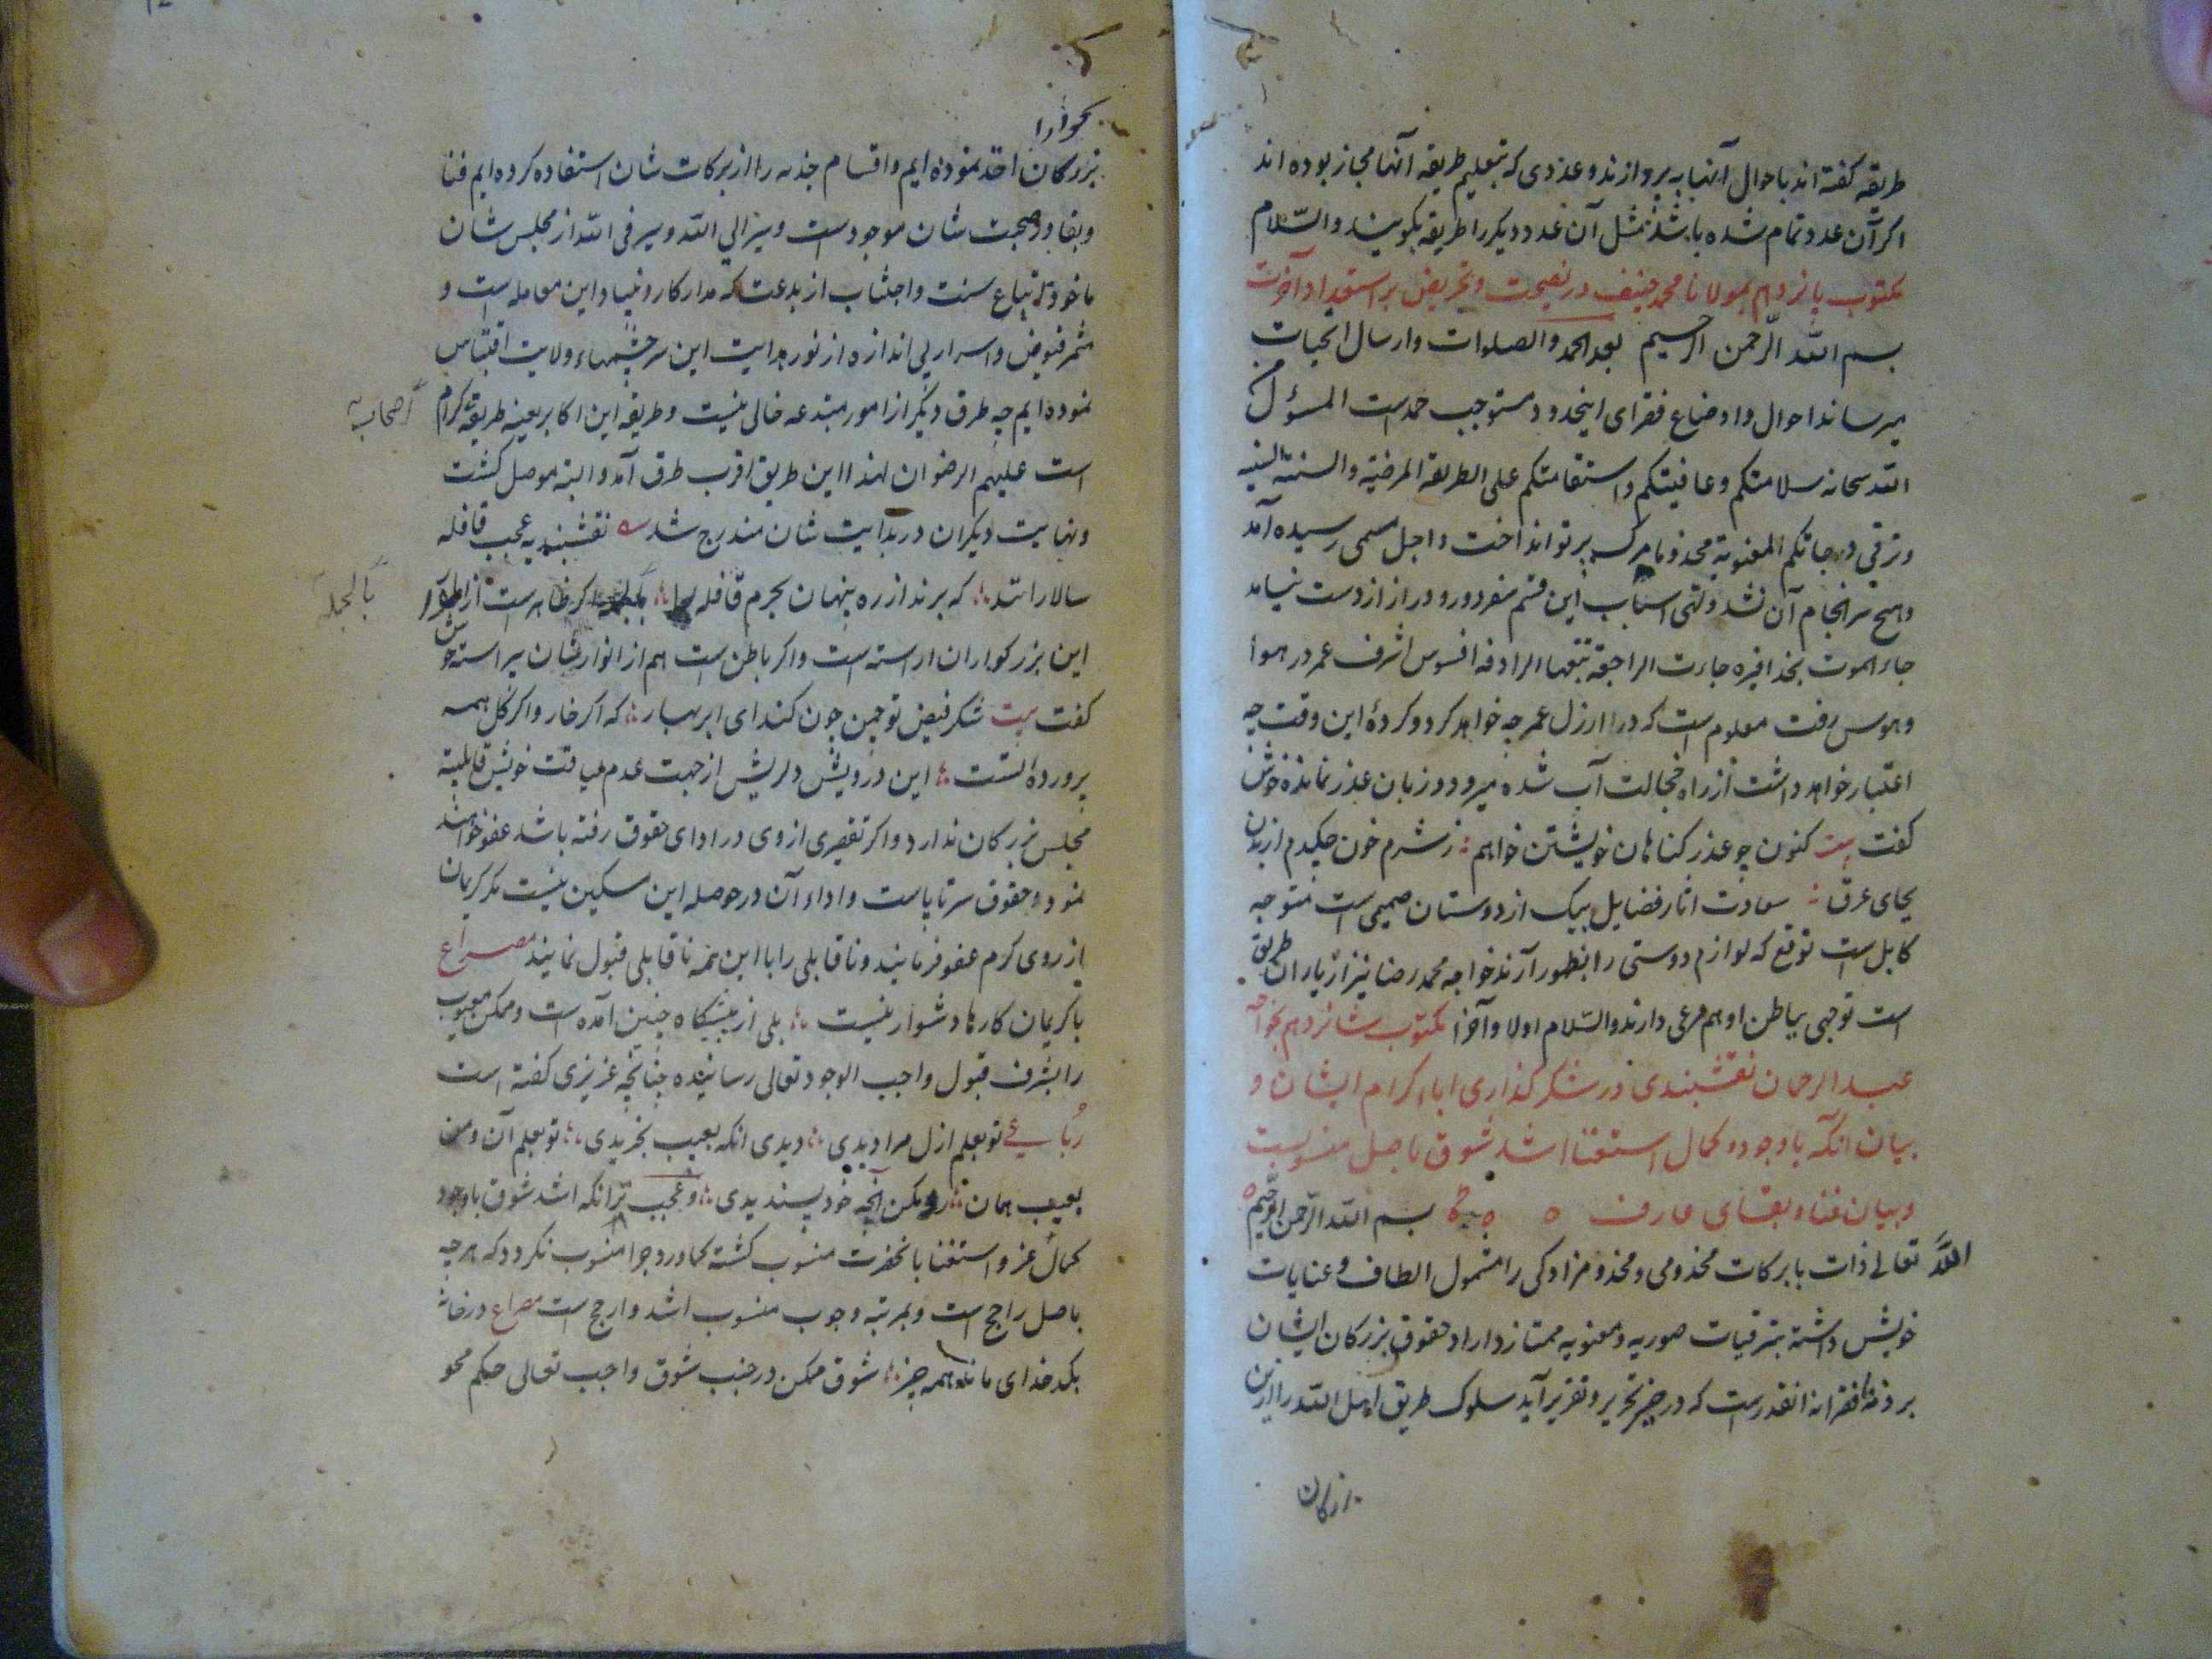 طریقه کفته اند باحوال آنها به پردازند و عددی که بتعلیم طریقه آنها مجاز بوده اند
اکر آن عدد تمام شده باشد مثل آن عدد دیکر را طریقه بکویند والسّلام
مکتوب پانزدهم بمولانا محمد حنیف در نصیحت و تحریض بر استعداد آخرت
بسم اللّه الرّحمن الرحیم بعد الحمد والصلوات وارسال التحیات
میرساند احوال و اوضاع فقرای اینحدود مستوجب حمدست المسؤل
اللّه سبحانه سلامتکم وعافیتکم واستقامتکم علی الطریقة المرضیة والسنة السنیه
وترقی درجاتکم المعنویة مخدوما مرک پرتو انداخت و اجل مسمی رسیده آمد
وهیچ سرانجام آن نشد و تهی اسباب این قسم سفر دور و دراز از دست نیامد
جاء الموت بحذافیره جاءت الراجفة تتبعها الرادفه افسوس اشرف عمر در هوا
وهوس رفت معلوم است که در ارزل عمر چه خواهد کرد و کردهٔ این وقت چه
اعتبار خواهد داشت از راه خجالت آب شده میرود و زبان عذر نمانده خوش
کفت بیت کنون چو عذر کناهان خویشتن خواهم ز شرم خون چکیدم از زبان
بجای عرق سعادت اثار فضایل بیک از دوستان صمیمی است متوجه
کابل است توقع که لوازم دوستی را بظهور آرند خواجه محمد رضا نیز از یاران طریق
است توجهی بباطن او هم مرعی دارند والسّلام اولا وآخرا مکتوب شانزدهم بخواجه
عبد الرحمان نقشبندی در شکر کذاری اباء کرام ایشان و
بیان انکه باوجود کمال استغنا اشد شوق باصل منسوبست
وبیان فنا و بقای عارف بسم اللّه الرّحمن الرّحیم
اللّه تعالی ذات بابرکات مخدومی و مخدوم زادکی را مشمول الطاف و عنایات
خویش داشته بترقیات صوریه و معنویه ممتاز داراد حقوق بزرکان ایشان
بر ذمهٔ فقرا نه انقدرست که در حیز تحریر و تقریر آید سلوک طریق اهل اللّه را ازین
بزرکان
بزرکان اخذ نموده ایم واقسام جذبه را از برکات شان استفاده کرده ایم فنا
وبقا در صحبت شان موجود است وسیر الی اللّه وسیر فی اللّه از مجلس شان
ماخوذ اتباع سنت واجتناب از بدعت که مدار کار و بنیاد این معامله است و
مثمر فیوض و اسرار بی اندازه از نور هدایت این سرچشمهاء ولایت اقتباس
نموده ایم چه طرق دیکر از امور مبتدعه خالی نیست وطریقه این اکابر بعینه طریقهٔ کرام
اصحاب
است علیهم الرضوان لهذا این طریق اقرب طرق آمد والبته موصل کشت
ونهایت دیکران در بدایت شان مندرج شد نقشبندیه عجب قافله
سالارانند که برند از ره پنهان بحرم قافله را اکر ظاهرست از اطوار
بالجمله
این بزرکواران اراسته است واکر باطن است هم از انوار شان پیراسته خوش
کفت بیت شکر فیض تو چمن چون کند ای ابر بهار که اکر خار و اکر کل همه
پروردهٔ تست این درویش دلریش از جهت عدم لیاقت خویش قابلیت
مجلس بزرکان ندارد واکر تقصیری از وی در ادای حقوق رفته باشد عفو خواهند
نمود حقوق سرتاپاست واداء آن در حوصله این مسکین نیست مکر کریمان
از روی کرم عفو فرمایند وناقابلی را با این همه ناقابلی قبول نمایند مصراع
باکریمان کارها دشوار نیست بلی از پیشکاه چنین آمده است وممکن معیوب
را بشرف قبول واجب الوجود تعالی رسانیده چنانچه عزیزی کفته است
رباعی تو بعلم ازل مرا دیدی دیدی انکه بعیب بخریدی تو بعلم آن ومن
بعیب همان رد مکن آنچه خود پسندیدی وعجب تر انکه اشد شوق باوجود
کمال عز واستغنا بانحضرت منسوب کشته کما ورد چرا منسوب نکردد که هرچه
باصل راجح است وبمرتبه وجوب منسوب اشد وارجح است مصراع در خانهٔ
بکدخدای ماند همه چیز شوق ممکن در جنب شوق واجب تعالی حکم محو